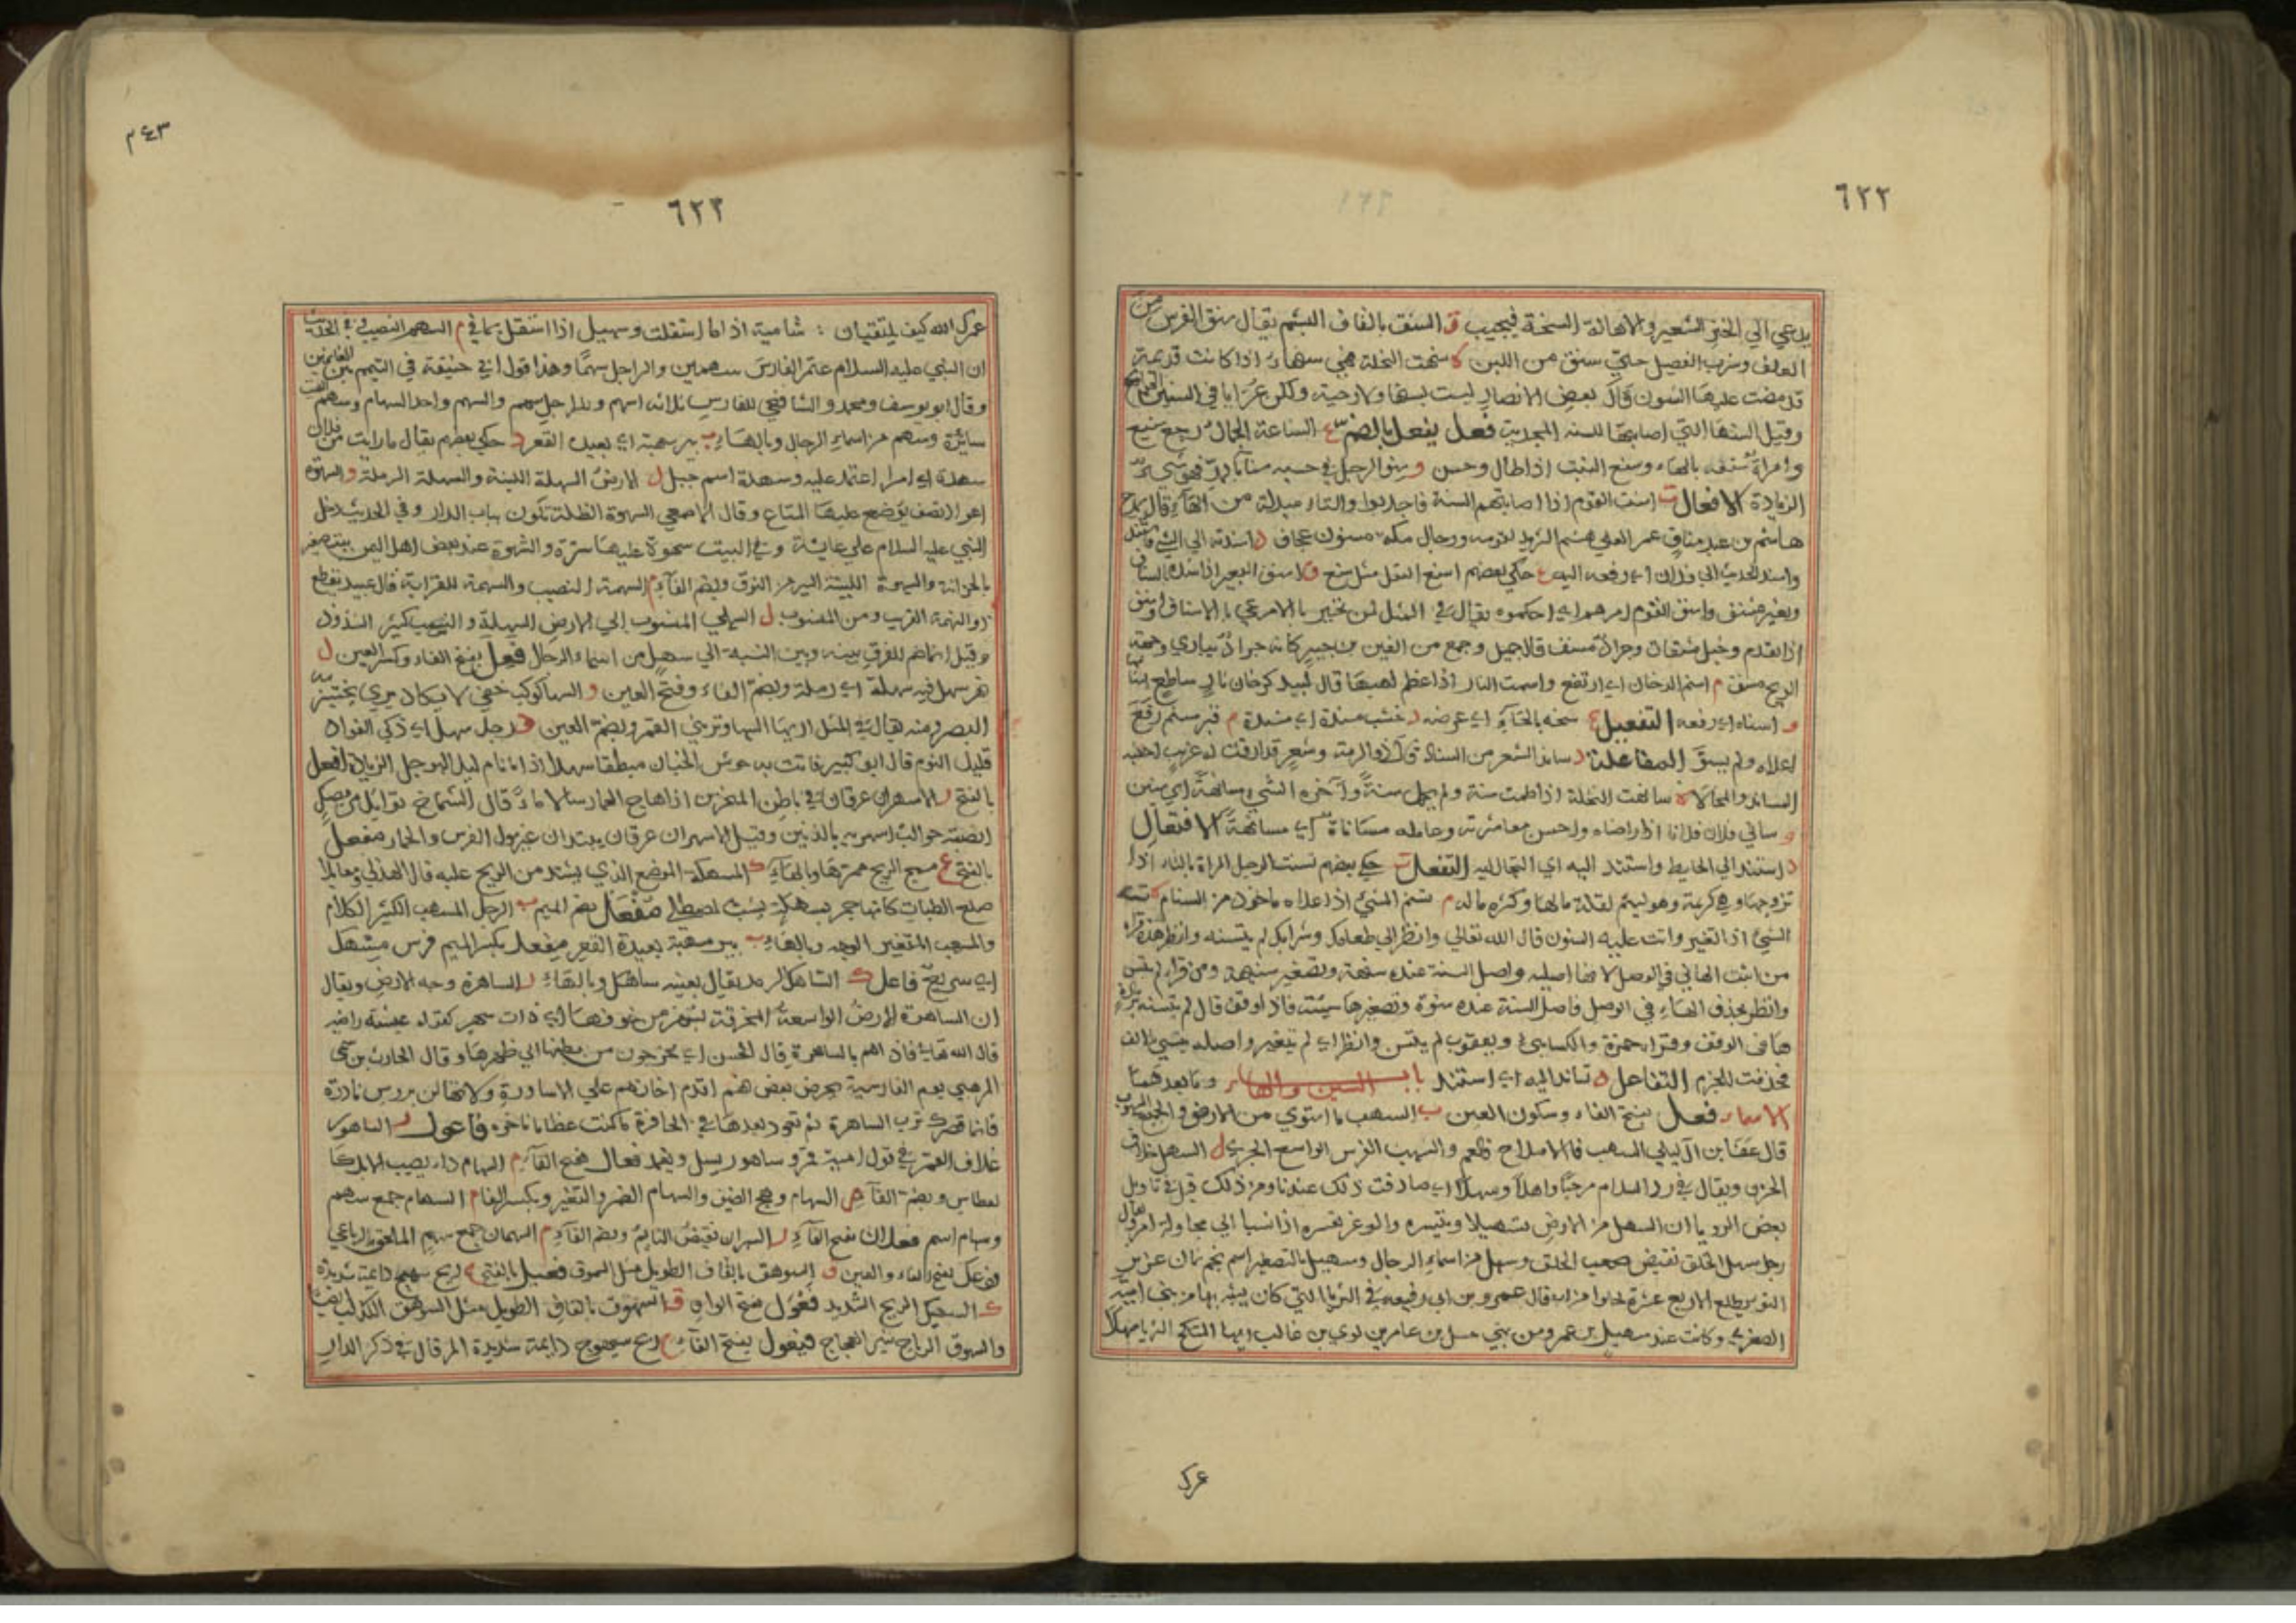 ٦٢٢
يدعي الي الخبز الشعير والاهالة السنخة فيجيب ق السنق بالقاف البشم يقال سنق الفرس من
العلف وشرب الفصيل حتي سنق من اللبن ه سنهت النخلة فهي سنهاء اذا كانت قديمة
قد مضت عليها السنون قال بعض الانصار ليست بسنهاء ولا رجبية ولكن عرايا في السنين الجوائح
وقيل السنها التي اصابتها السنه المجدبة فعل يفعل بالضم ع السناعة الجمال رجع سنيع
وامراة سنعه بالهاء وسنع النبت اذا طال وحسن و سنو الرجل في حسبه سناء فهو سني
الزيادة الافعال ت اسنت القوم اذا اصابتهم السنة فاجدبوا والتاء مبدلة من الهاء قال يمدح
هاشم بن عبد مناف عمر العلي هشم الثريد لقومه ورجال مكة مسنتون عجاف د اسندته الي الشيء فاستند
واسند الحديث الي فلان اي رفعه اليه ع حكي بعضهم اسنع البقل مثل سنع ف اسنف البعير اذا شده بالسناف
وبعير مسنف واسنف القوم امرهم اي احكموه يقال في المثل لمن تحير بالامر عي بالاسناف واسنف
اذا تقدم وخيل مسنفات
الريح مسنف م اسنم الدخان اي ارتفع واسنمت النار اذا عظم لهبها قال لبيد كدخان نار ساطع اسنامها
و اسناه اي رفعه التفعيل ه سنحه بالحاء اي عرضه د خشب مسندة اي مشددة م قبر مسنم رفع
اعلاه ولم يسو المفاعلة د ساند الشعر من السناد قال ذو الرمة وشعر قد ارقت له غريب اجنبه
المساند والمحالا ه سانهت النخلة اذا حملت سنة ولم تحمل سنة وآجره الشيء مسانهة اي سنين
و ساني فلان فلانا اذا راضاه واحسن معاشرته وعامله مساناة اي مسانهة الافتعال
د استند الي الحايط واستند اليه اي التجا اليه التفعل ت حكي بعضهم تسنت الرجل المراة بالتاء اذا
تزوجها وهي كريمة وهو لييم لقلة مالها وكثرة ماله م تسنم الشيئ اذا علاه ماخوذ من السنام ه تسنه
الشيئ اذا تغير واتت عليه السنون قال الله تعالي وانظر الي طعامك وشرابك لم يتسنه وانظر هذه قراة
من اثبت الهائي في الوصل لانها اصليه واصل السنة عنده سنهة وتصغير سنيهة ومن قرا لم يتسن
وانظر بحذف الهاء في الوصل فاصل السنة عنده سنوة وتصغيرها سنية فاذا وقف قال لم يتسنه بزيادة
هاء في الوقف وقرا حمزة والكسائي ويعقوب لم يتسن وانظر اي لم يتغير واصله يتسني بالف
فحذفت للجزم التفاعل د تساند اليه اي استند باب السين والهاء وما بعدهما
الاسماء فعل بفتح الفاء وسكون العين ب السهب ما استوي من الارض والجمع السهوب
والسهب الفرس الواسع الجري ل السهل خلاف
الحزن ويقال في رد السلام مرحبا واهلا وسهلا اي صادفت ذلك عندنا ومن ذلك قيل في تاويل
بعض الرويا ان السهل من الارض تسهيلا وتيسره والوعر تعسره اذا نسبا الي محاولة امر ويقال
رجل سهل الخلق نقيض صعب الخلق وسهل من اسماء الرجال وسهيل بالتصغير اسم نجم
قال عمرو بن ابي ربيعه في الثريا التي كان يشبب بها من بني امية
الصغري وكانت عند سهيل بن عمرو من بني حسل بن عامر بن لوي بن غالب ايها المنكح الثريا سهيلا
عمرك
٢٤٣
٦٢٣
عمرك الله كيف يلتقيان : شامية اذا ما استقلت وسهيل اذا استقل يماني م السهم النصيب وفي الحديث
ان النبي عليه السلام غنم الفارس سهمين والراجل سهما وهذا قول ابي حنيفة في القيم بين الغانمين
وقال ابو يوسف ومحمد والشافعي للفارس ثلاثه اسهم وللراجل سهم والسهم واحد السهام وسهم البيت
سائزه وسهم من اسماء الرجال وبالهاء ب بير سهبة اي بعيدة القعر د حكي بعضهم يقال ما رايت من فلان
سهدة اي امرا اعتمد عليه وسهدة اسم جبل ل الارض السهلة اللينة والسهلة الرملة و السهوة
اعواد تصف توضع عليها المتاع وقال الاصمعي السهوة الظلة تكون بباب الدار وفي الحديث دخل
النبي عليه السلام علي عايشة وفي البيت سهوة عليها سترة والسهوة عند بعض اهل اليمن بيت صغير
بالخزانة والسهوة اللينة السير من النوق وبضم الفاء م السهمة النصيب والسهمة القرابة قال عبيد تقطع
ذو السهمة القريب ومن المنسوب ل السهلي المنسوب الي الارض السهلة والنسب كثير الشذوذ
وقيل انما ضم للفرق بينه وبين النسبة الي سهل من اسماء الرجال فعل بفتح الفاء وكسر العين ل
نهر سهل فيه سهلة اي رملة وبضم الفاء وفتح العين و السها كوكب خفي لا يكاد يري يختبر به
البصر ومنه يقال في المثل اريها السها وتريني القمر وبضم العين د رجل سهد اي ذكي الفواد
قليل النوم قال ابو كبير فاتت به حوش الجنان مبطنا سهدا اذا ما نام ليل الهوجل الزيادة افعل
بالفتح ر الاسهران عرقان في باطن المنخرين اذا هاج الحمار سالا ماء قال الشماخ توايل من مصك
انصبته حوالب اسهريه بالذنين وقيل الاسهران عرقان يبتدران عند بول الفرس والحمار مفعل
بالفتح ج مسهج الريح ممرها وبالهاء ك المسهكة الموضع الذي يشتد من الريح عليه قال الهذلي
مفعل بضم الميم ب الرجل المسهب الكثير الكلام
والمسهب المتغير الوجه وبالهاء ب بير مسهبة بعيدة القعر مفعل بكسر الميم فرس مسهك
اي سريع فاعل ك الساهك الرمد يقال بعينه ساهك وبالهاء ر الساهرة وجه الارض ويقال
ان الساهرة الارض الواسعة المخرقة لسهر من خوفها اي ذات سهر كقوله عيشة راضية
قال الله تعالي فاذا هم بالساهرة قال الحسن اي يخرجون من بطنها الي ظهرها وقال الحارث بن سمي
المرهبي يوم القادسية يحرض بعض هم اقدم اخا نهم علي الاساورة ولا تهالن بروس نادرة
فانما قصرك ترب الساهرة ثم تعود بعدها في الحافرة ما كنت عظاما ناخره فاعول ر الساهور
غلاف القمر في قول امية قمر وساهور يسل ويغمد فعال بفتح الفاء م السهام داء يصيب الابل كا
لعطاس وبضم الفاء م السهام وهج الصيف والسهام الضمر والتغير وبكسر الفاء م السهام جمع سهم
وسهام اسم فعلان بفتح الفاء ر السهران نقيض النايم وبضم الفاء م السهمان جمع سهم الملحق بالرباعي
فوعل بفتح الفاء والعين ق السوهق بالقاف الطويل مثل السهوق فعيل بالفتح ج ريح سهيج دايمة شديدة
ك السهيك الريح الشديد فعول بفتح الواو ق السهوق بالقاف الطويل مثل السوهق الكذاب ايضا
والسهوق الريح تثير العجاج فيعول بفتح الفاء ج ريح سيهوج دايمة شديدة المرقال في ذكر الدار